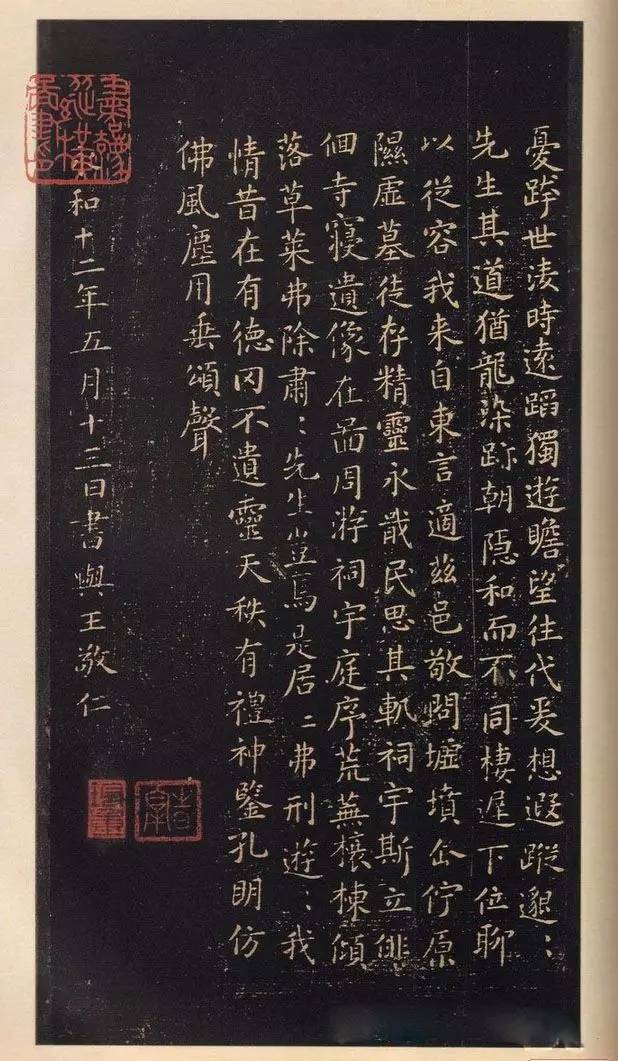 憂跨世凌時遠蹈獨遊瞻望往代爰想遐蹤邈:
先生其道猶龍染跡朝隱和而不同棲遲下位聊
以從容我来自東言適茲邑敬問墟墳企佇原
隰虛墓徒存精靈永戢民思其軌祠宇斯立俳
佪寺寢遺像在啚周游祠宇庭序荒蕪榱棟傾
落草萊弗除肅:先生豈焉是居二弗刑遊:我
情昔在有德罔不遺靈天秩有禮神鑒孔明仿
佛風塵用垂頌聲
和十二年五月十三日書與王敬仁